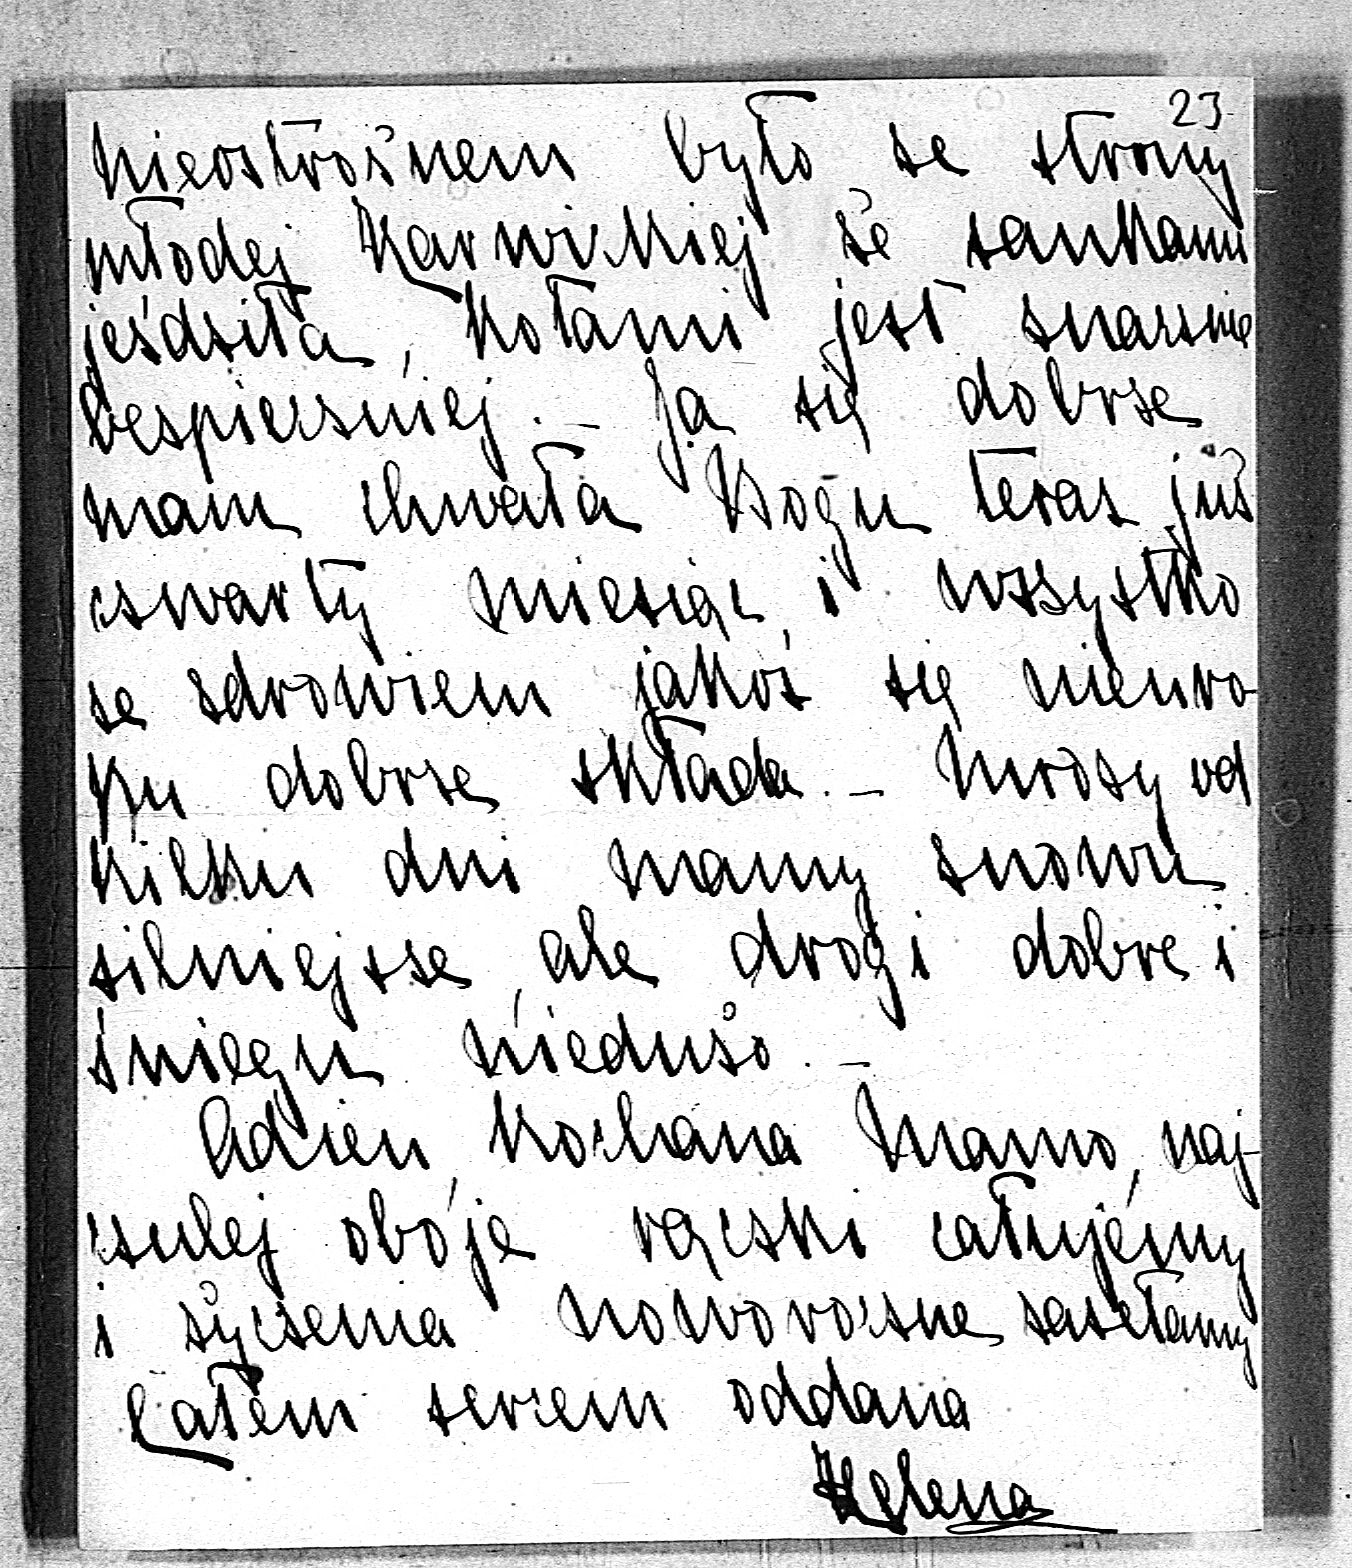 23
nieostrożnem było ze strony
młodej Karwickiej że sankami
jeździła, kołami jest znacznie
bezpieczniej. – Ja się dobrze
mam chwała Bogu teraz już
czwarty miesiąc i wszystko
ze zdrowiem jakoś się nieuro-
ku dobrze składa. – Mrozy od
kilku dni mamy znowu
silniejsze, ale drogi dobre i
śniegu niedużo. –
Adieu, Kochana Mamo, naj-
czulej oboje rączki całujémy
i życzenia noworoczne zasełamy
Całém sercem oddana
Helena